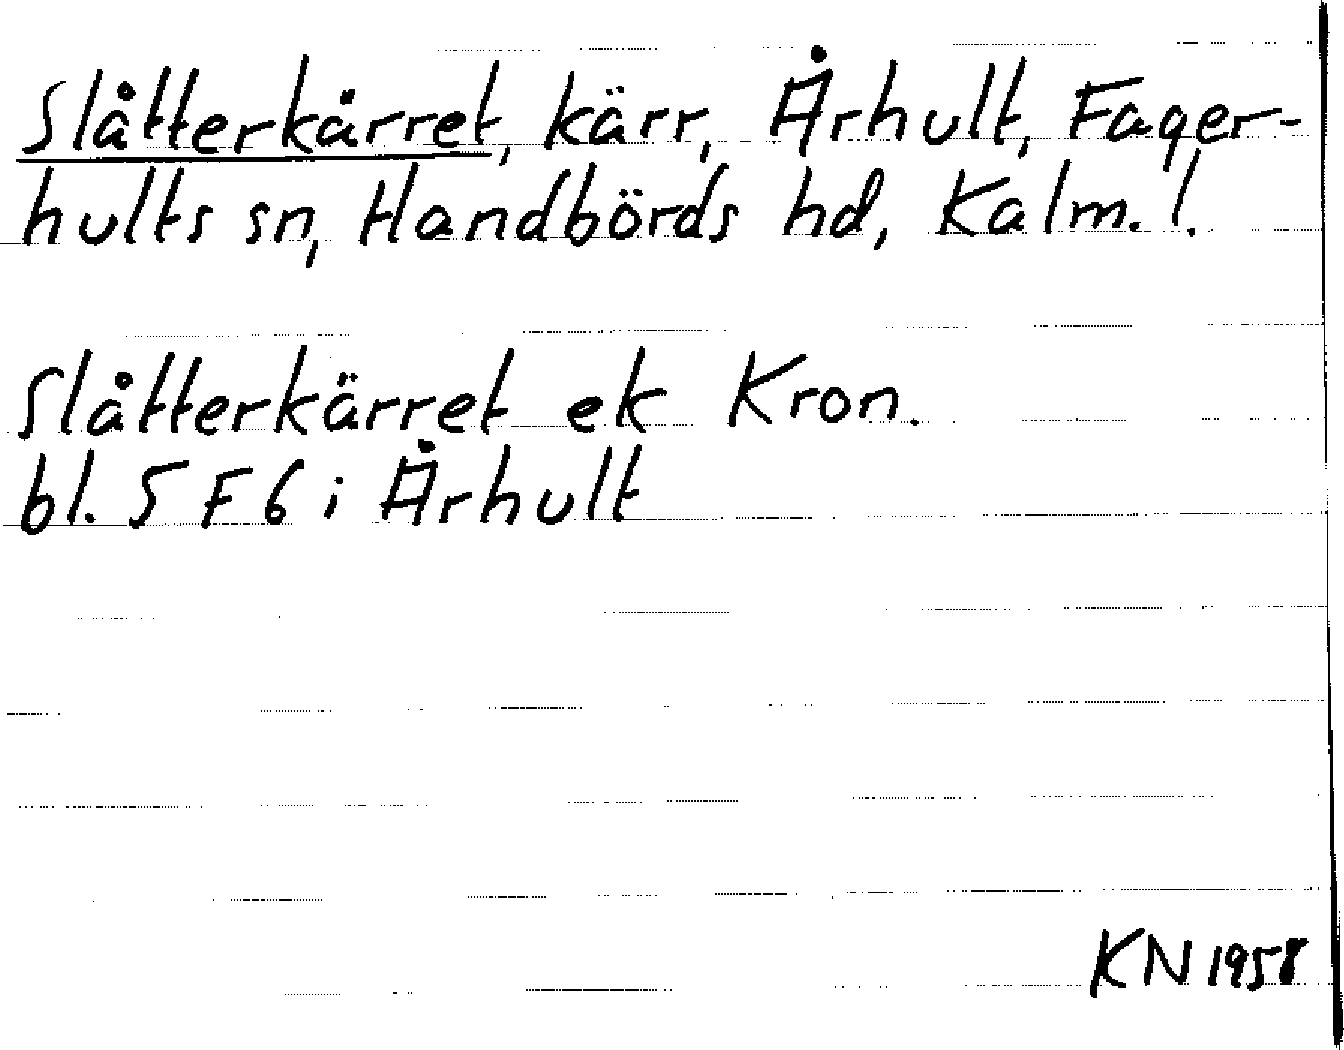 Slåtterkårret, kärr, Århult, Fager-
hults sn, Handbörds hd, Kalm. l.
Slåtterkärret ek Kron.
bl. 5 F 6 i Århult
KN 1958